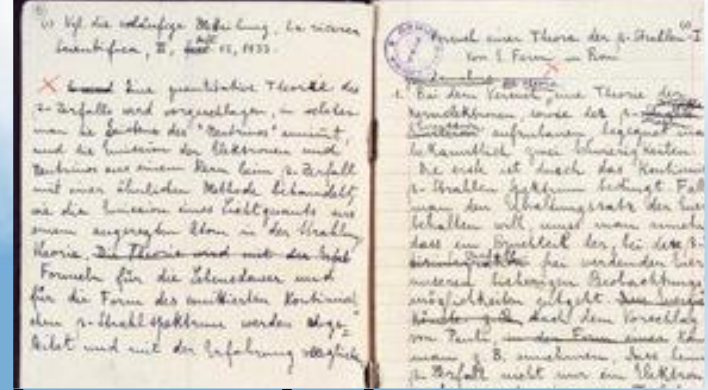 1) Vgl. die vorläufige Mitteilung, La ricerca
Scientifica, II, 12, 1933.
Eine quantitative Theorie des
β-Zerfalls wird vorgeschlagen, in welcher
man die Existenz des "Neutrinos" annimmt,
und die Emission der Elektronen und
Neutrinos aus einem Kern beim β-Zerfall
mit einer ähnlichen Methode behandelt,
wie die Emission eines Lichtquants aus
einem angeregten Atom in der Strahlung
theorie. Die Theorie wird mit der
Formeln für die Lebensdauer und
für die Form des emittierten kontinuier
chen β-Strahlspektrums werden abge-
leitet und mit der Erfahrung verglichen
Versuch einer Theorie der β-Strahlen I
Von E. Fermi in Rom
1. Bei dem Versuch, eine Theorie der
Kernelektronen, sowie der β-
aufzubauen, begegnet man
bekanntlich zwei Schwierigkeiten.
Die erste ist durch das Kontinu
β-Strahlen Spektrum bedingt. Fall
man den Erhaltungssatz der Ener
behalten will, muss man
dass ein Bruchteil der, bei dem β-
frei werdenden Ener
unseren bisherigen Beobachtungs
möglichkeiten entgeht.
Nach dem Vorschlag
von Pauli, kan
man z. B. annehmen, dass beim
β-Zerfall nicht nur ein Elektron